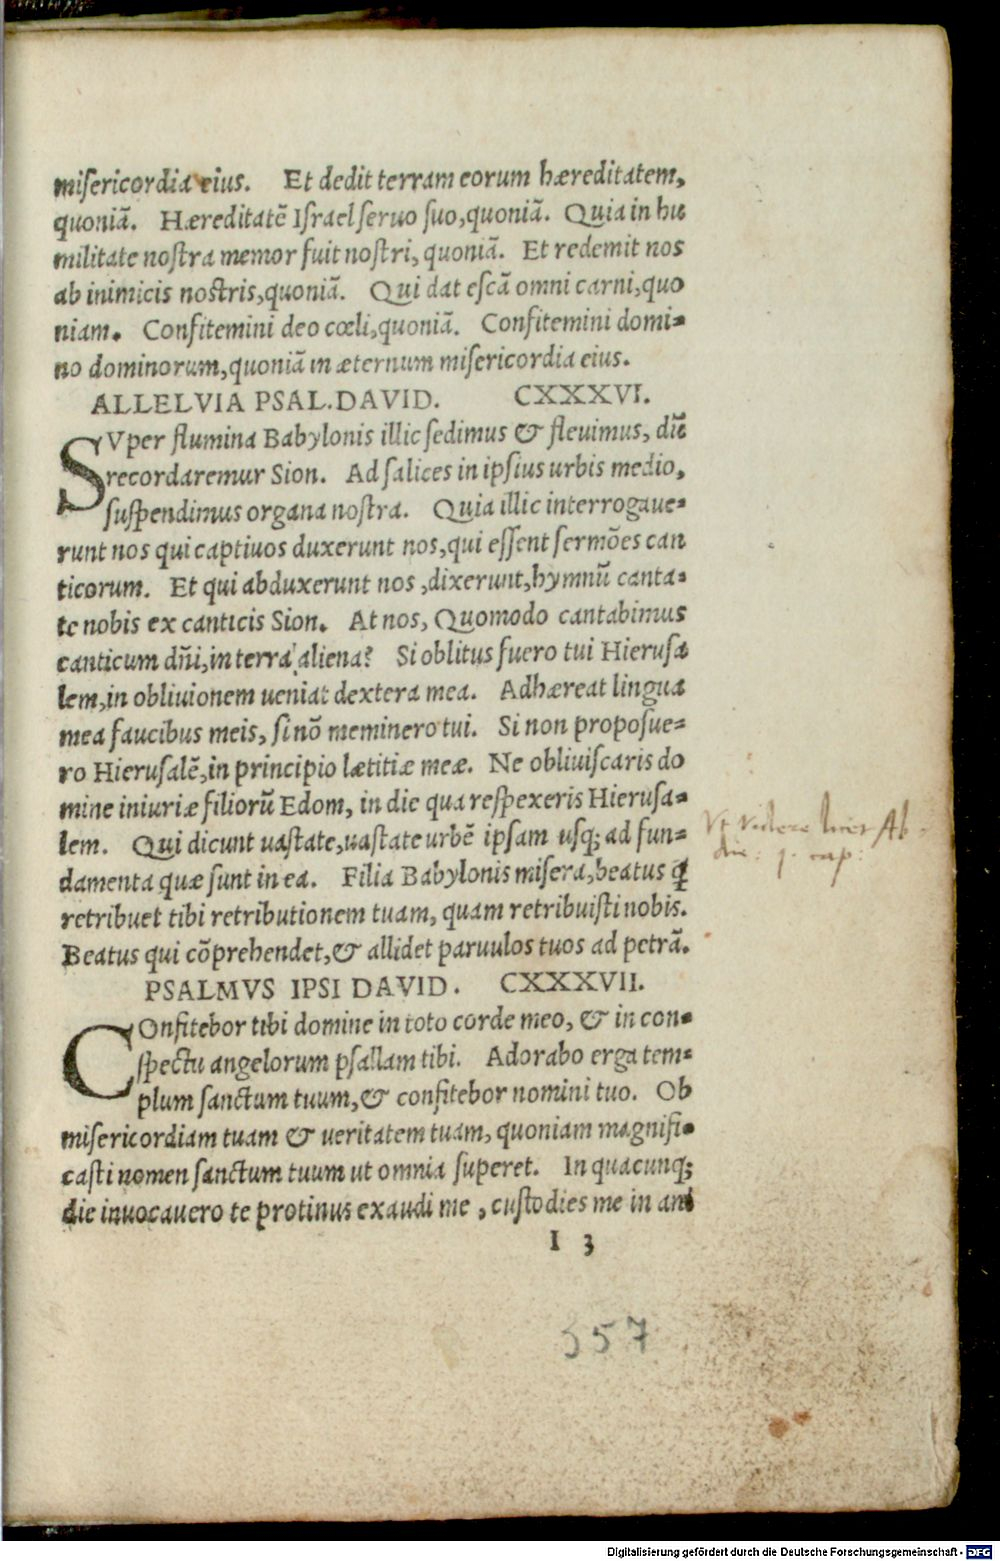 misericordia eius. Et dedit terram eorum hæreditatem,
quoniã. Hæreditatẽ Israel seruo suo, quoniã. Quia in hu
militate nostra memor fuit nostri, quoniã. Et redemit nos
ab inimicis nostris, quoniã. Qui dat escã omni carni, quo
niam. Confitemini deo cœli, quoniã. Confitemini domi=
no dominorum, quoniã in æternum misericordia eius.
ALLELVIA PSAL. DAVID. CXXXVI.
SVper flumina Babylonis illic sedimus & fleuimus, dũ
recordaremur Sion. Ad salices in ipsius urbis medio,
suspendimus organa nostra. Quia illic interrogaue=
runt nos qui captiuos duxerunt nos, qui essent sermões can
ticorum. Et qui abduxerunt nos, dixerunt, hymnũ canta=
te nobis ex canticis Sion. At nos, Quomodo cantabimus
canticum dñi, in terra aliena? Si oblitus fuero tui Hierusa
lem, in obliuionem ueniat dextera mea. Adhæreat lingua
mea faucibus meis, si nõ meminero tui. Si non proposue=
ro Hierusalẽ, in principio lætitiæ meæ. Ne obliuiscaris do
mine iniuriæ filiorũ Edom, in die qua respexeris Hierusa=
lem. Qui dicunt uastate, uastate urbẽ ipsam usq; ad fun=
damenta quæ sunt in ea. Filia Babylonis misera, beatus q̃
retribuet tibi retributionem tuam, quam retribuisti nobis.
Beatus qui cõprehendet, & allidet paruulos tuos ad petrã.
PSALMVS IPSI DAVID. CXXXVII.
COnfitebor tibi domine in toto corde meo, & in con=
spectu angelorum psallam tibi. Adorabo erga tem=
plum sanctum tuum, & confitebor nomini tuo. Ob
misericordiam tuam & ueritatem tuam, quoniam magnifi=
casti nomen sanctum tuum ut omnia superet. In quacunq;
die inuocauero te protinus exaudi me, custodies me in ani
I 3
357
Vt videre licet Ab
die: 1. cap:
Digitalisierung gefördert durch die Deutsche Forschungsgemeinschaft - DFG